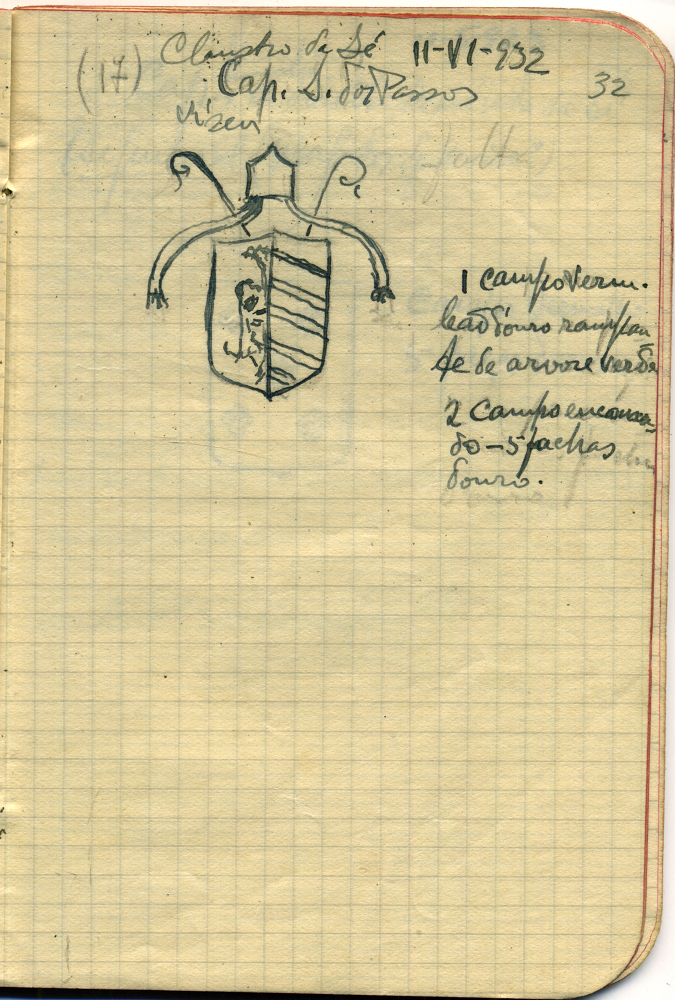 (17) Claustro da Sé 11-VI-932
Cap. S. dos Passos 32
Viseu
1 campo verm.
leão d'ouro rampan
te de arvore verde
2 Campo encarna
do - 5 fachas
d'ouro.